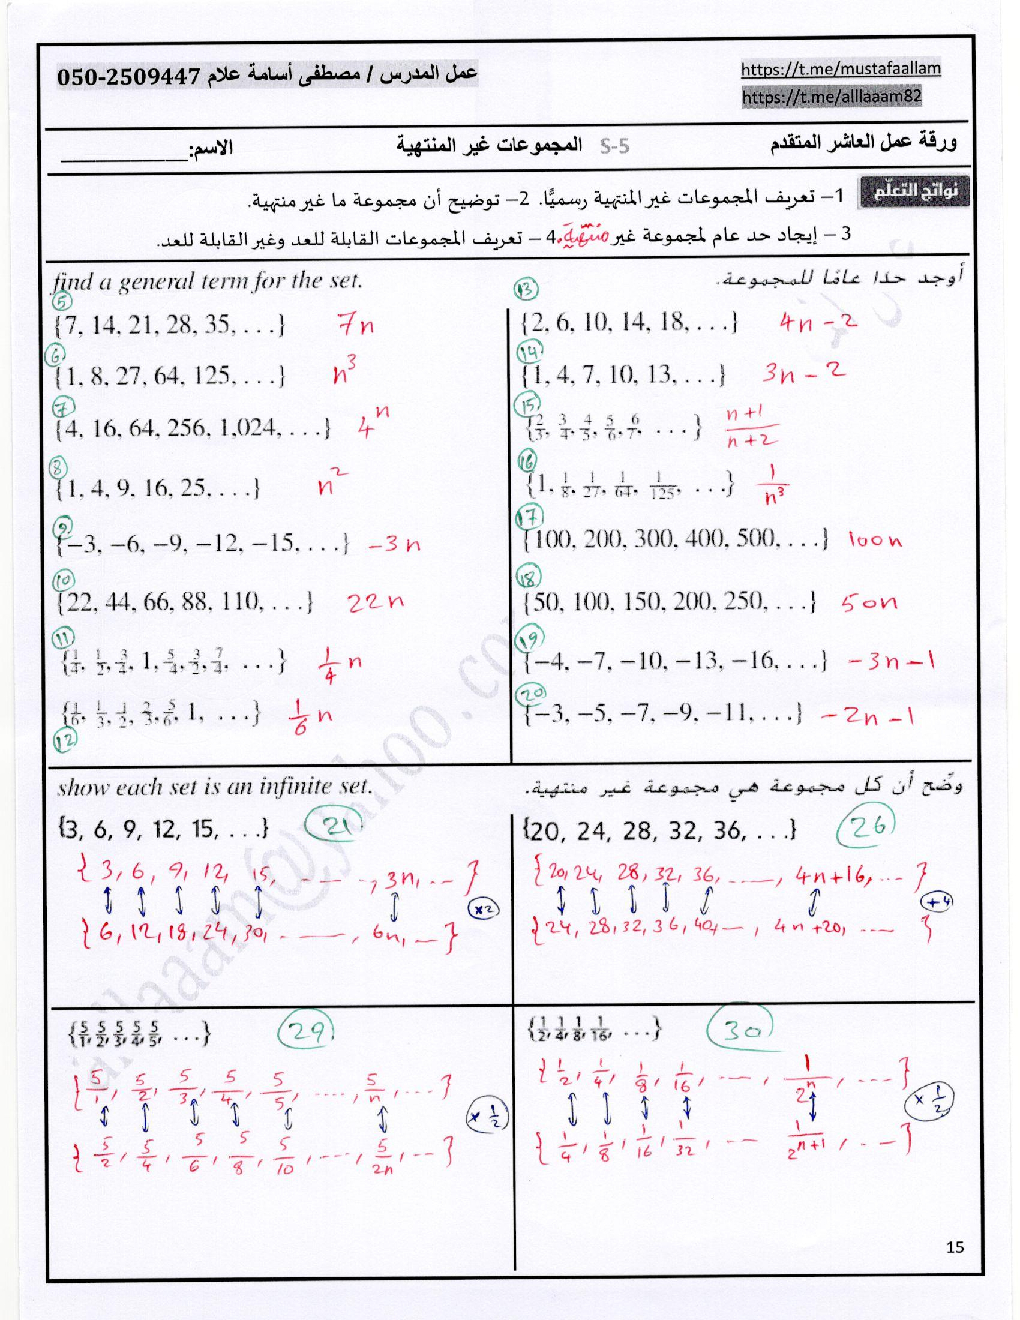 https://t.me/mustafaallam
عمل المدرس / مصطفى أسامة علام 050-2509447
https://t.me/alllaaam82
ورقة عمل العاشر المتقدم S-5 المجموعات غير المنتهية الاسم:____________
نواتج التعلّم
1– تعريف المجموعات غير المنتهية رسميًّا. 2– توضيح أن مجموعة ما غير منتهية.
3 – إيجاد حد عام لمجموعة غير منتهية. 4 – تعريف المجموعات القابلة للعد وغير القابلة للعد.
find a general term for the set.
أوجد حدًا عامًا للمجموعة.
5 {7, 14, 21, 28, 35, . . .} 7n
6 {1, 8, 27, 64, 125, . . .} n³
7 {4, 16, 64, 256, 1,024, . . .} 4ⁿ
8 {1, 4, 9, 16, 25, . . .} n²
9 {−3, −6, −9, −12, −15, . . .} −3n
10 {22, 44, 66, 88, 110, . . .} 22n
11 {1/4, 1/2, 3/4, 1, 5/4, 3/2, 7/4, . . .} 1/4 n
12 {1/6, 1/3, 1/2, 2/3, 5/6, 1, . . .} 1/6 n
13 {2, 6, 10, 14, 18, . . .} 4n − 2
14 {1, 4, 7, 10, 13, . . .} 3n − 2
15 {2/3, 3/4, 4/5, 5/6, 6/7, . . .} n+1/n+2
16 {1, 1/8, 1/27, 1/64, 1/125, . . .} 1/n³
17 {100, 200, 300, 400, 500, . . .} 100n
18 {50, 100, 150, 200, 250, . . .} 50n
19 {−4, −7, −10, −13, −16, . . .} −3n − 1
20 {−3, −5, −7, −9, −11, . . .} −2n − 1
show each set is an infinite set.
وضّح أن كل مجموعة هي مجموعة غير منتهية.
{3, 6, 9, 12, 15, . . .} 21
{3, 6, 9, 12, 15, ----, 3n, ...}
×2
{6, 12, 18, 24, 30, ----, 6n, —}
{20, 24, 28, 32, 36, . . .} 26
{20, 24, 28, 32, 36, ----, 4n+16, ...}
+4
{24, 28, 32, 36, 40, ---, 4n+20, ----}
{5/1, 5/2, 5/3, 5/4, 5/5, . . .} 29
{5/1, 5/2, 5/3, 5/4, 5/5, ...., 5/n, ...}
× 1/2
{5/2, 5/4, 5/6, 5/8, 5/10, ----, 5/2n, ---}
{1/2, 1/4, 1/8, 1/16, . . .} 30
{1/2, 1/4, 1/8, 1/16, ----, 1/2ⁿ, ----}
× 1/2
{1/4, 1/8, 1/16, 1/32, ---, 1/2ⁿ⁺¹, ---}
15